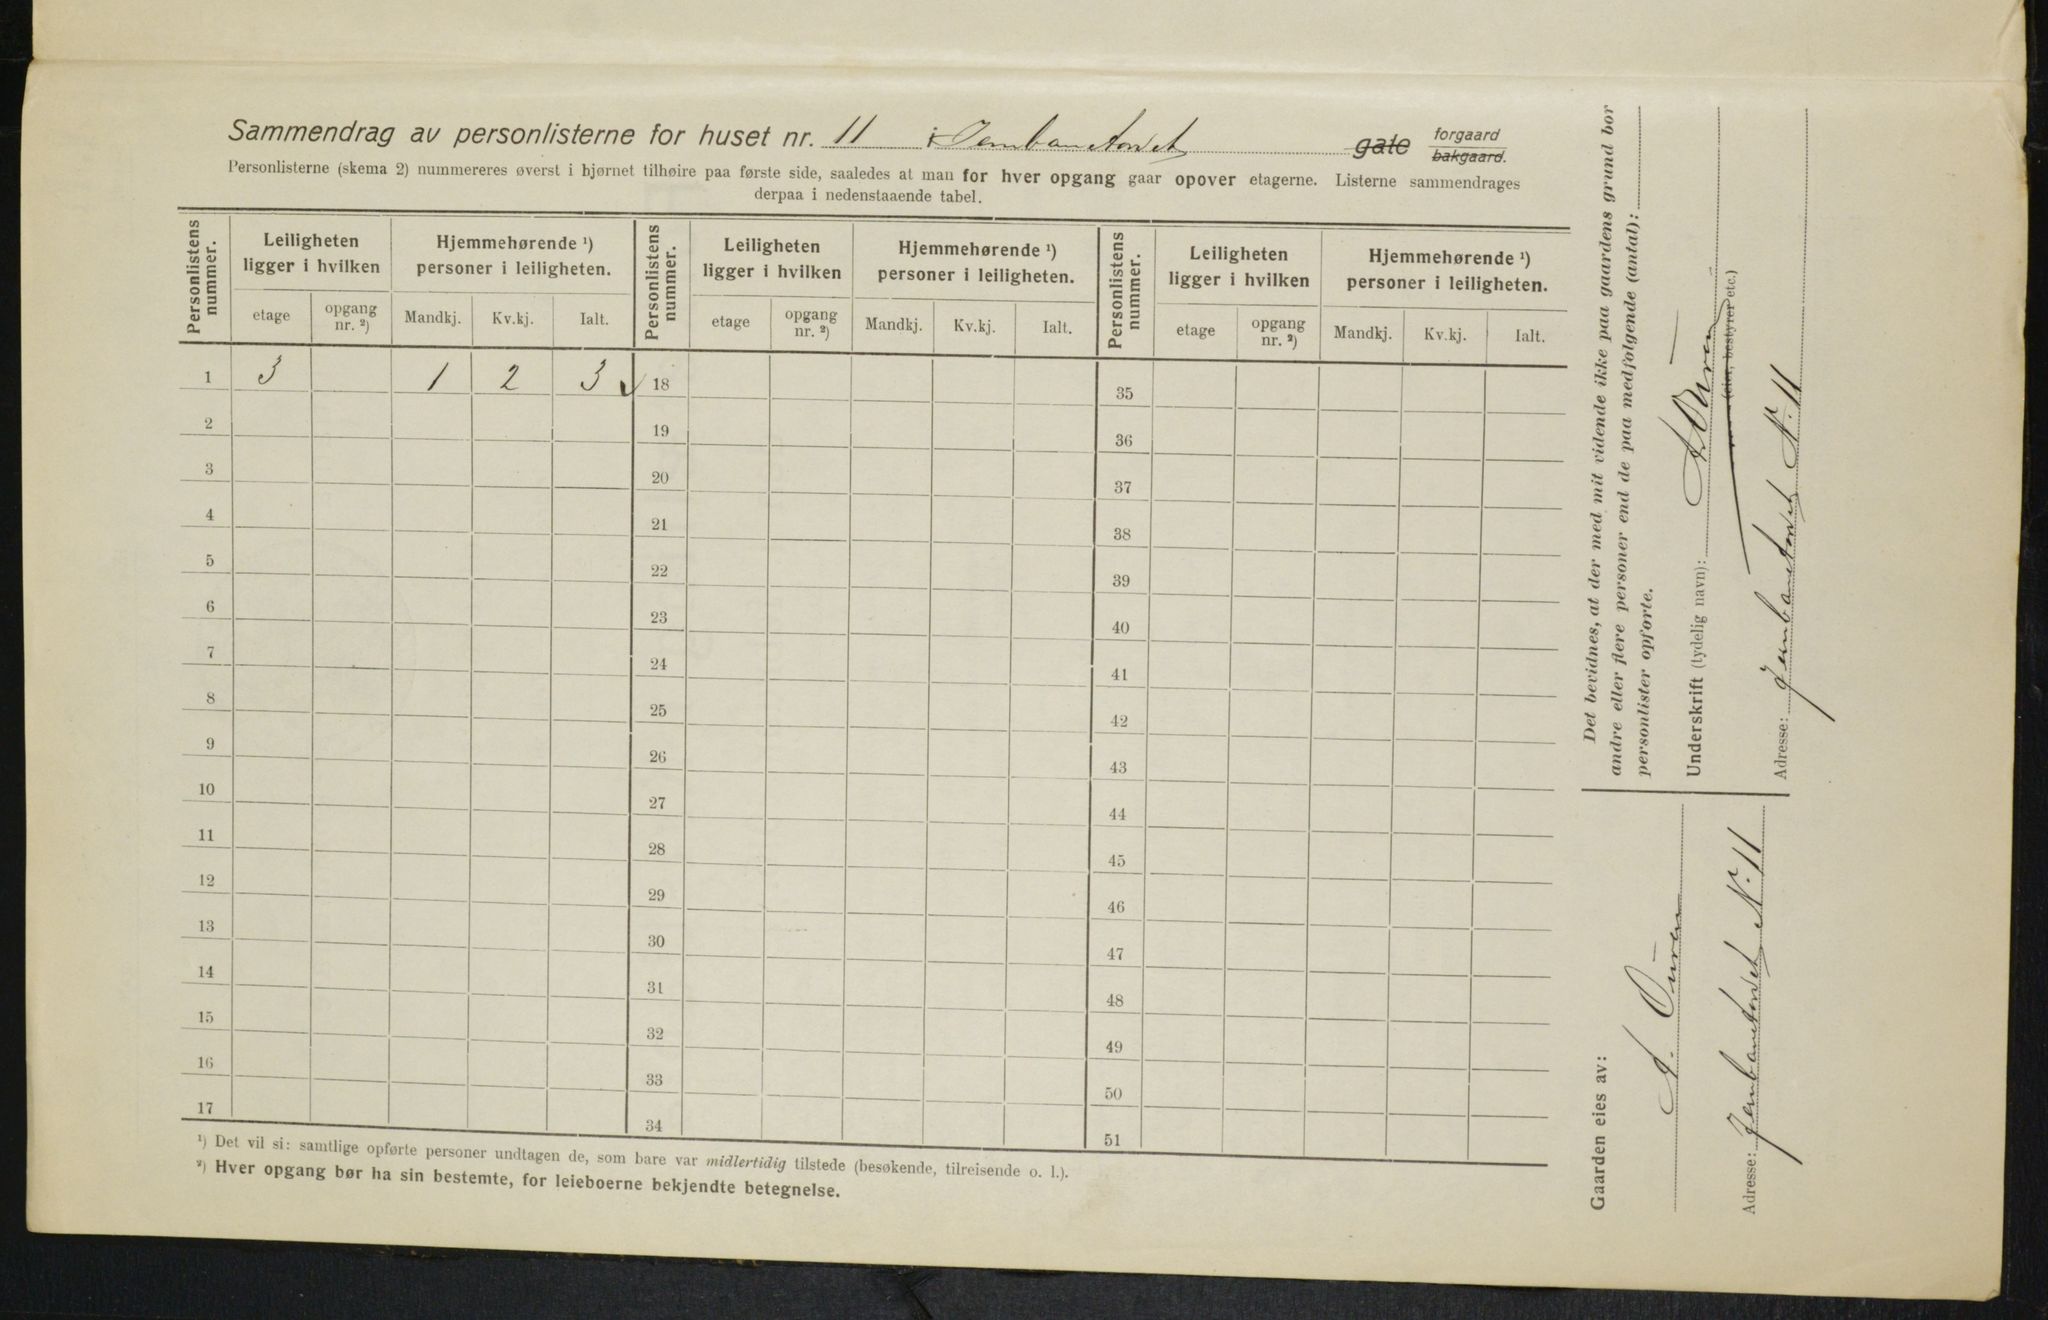 Sammendrag av personlisterne for huset nr. 11 i Jernbanetorvet gate forgaard bakgaard.
Personlisterne (skema 2) nummereres øverst i hjørnet tilhøire paa første side, saaledes at man for hver opgang gaar opover etagerne. Listerne sammendrages
derpaa i nedenstaaende tabel.
Personlistens nummer. Leiligheten ligger i hvilken Hjemmehørende ¹) personer i leiligheten. Personlistens nummer. Leiligheten ligger i hvilken Hjemmehørende ¹) personer i leiligheten. Personlistens nummer. Leiligheten ligger i hvilken Hjemmehørende ¹) personer i leiligheten.
etage opgang nr. ²) Mandkj. Kv.kj. Ialt. etage opgang nr. ²) Mandkj. Kv.kj. Ialt. etage opgang nr. ²) Mandkj. Kv.kj. Ialt.
1 3 1 2 3 18 35
2 19 36
3 20 37
4 21 38
5 22 39
6 23 40
7 24 41
8 25 42
9 26 43
10 27 44
11 28 45
12 29 46
13 30 47
14 31 48
15 32 49
16 33 50
17 34 51
¹) Det vil si: samtlige opførte personer undtagen de, som bare var midlertidig tilstede (besøkende, tilreisende o. l.).
²) Hver opgang bør ha sin bestemte, for leieboerne bekjendte betegnelse.
Det bevidnes, at der med mit vidende ikke paa gaardens grund bor
andre eller flere personer end de paa medfølgende (antal):
personlister opførte.
Underskrift (tydelig navn):
(eier, bestyrer etc.)
Adresse: Jernbanetorvet Nr. 11
Gaarden eies av:
Adresse: Jernbanetorvet Nr. 11